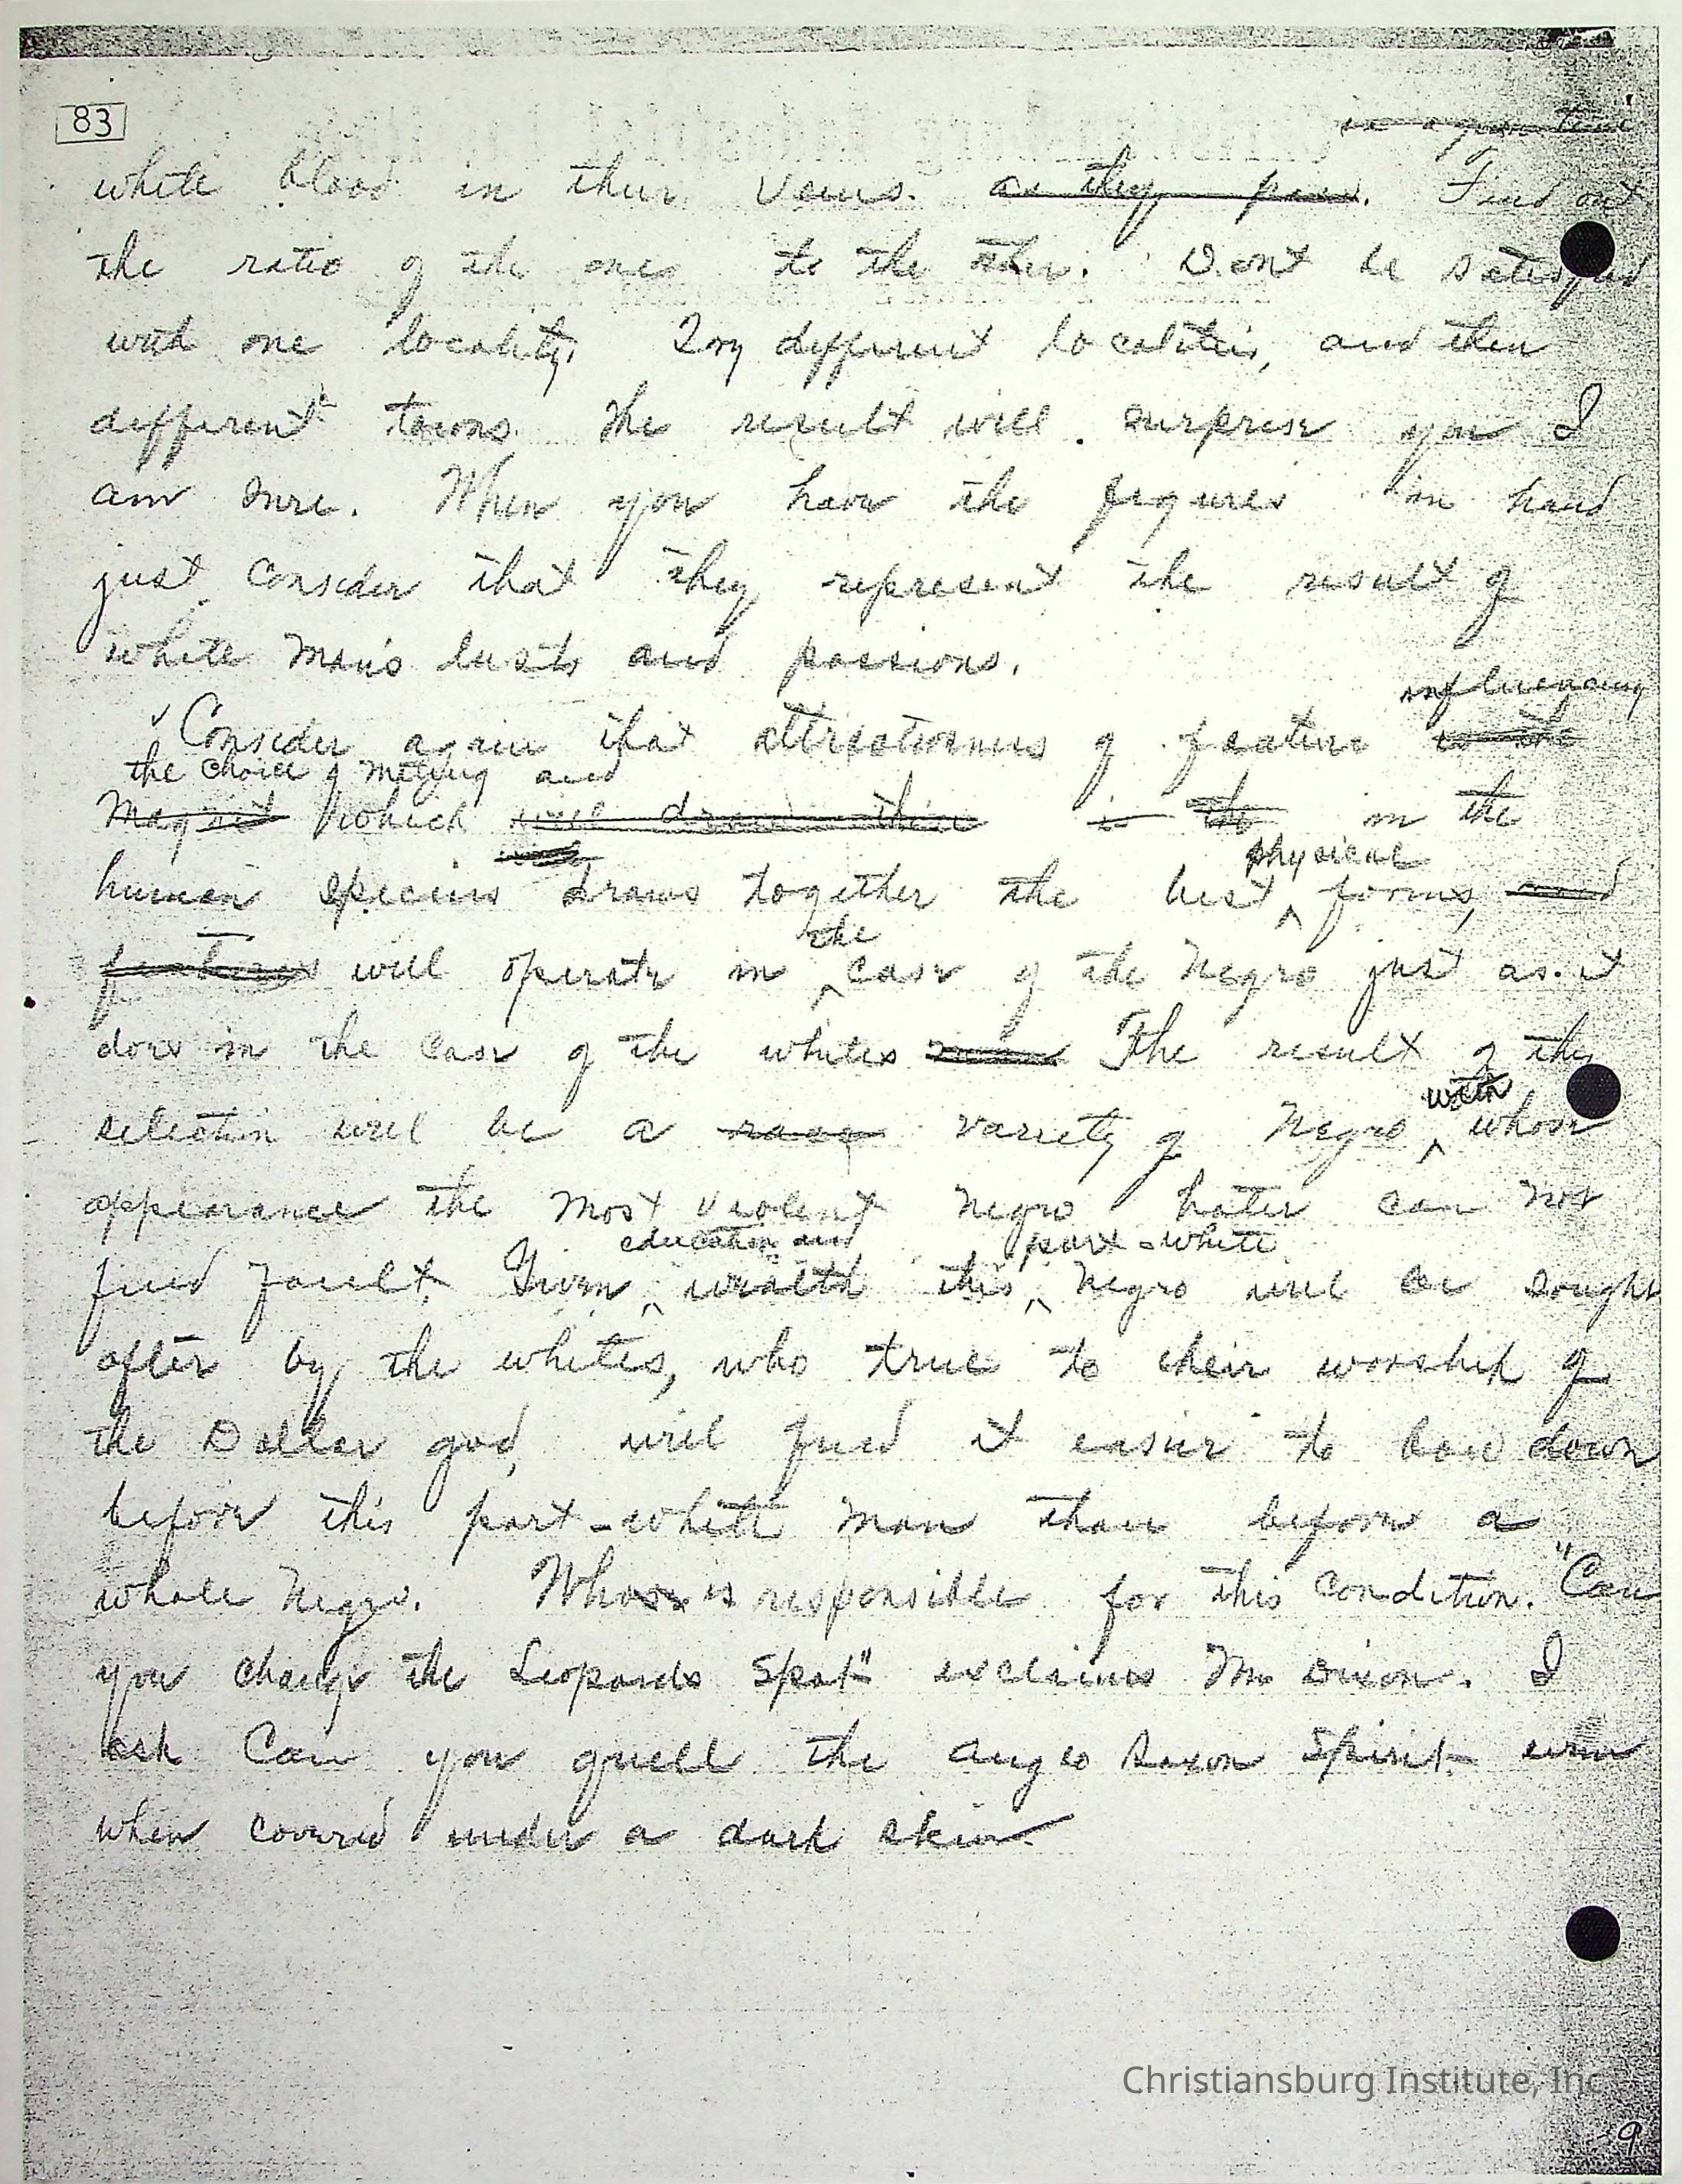 83
in a given time
white blood in their veins. as they pass. Find out
the ratio of the one to the other. Don't be satisfied
with one locality. Try different localities, and then
different towns. The result will surprise you I
am sure. When you have the figures in hand
just consider that they represent the result of
white man's lusts and passions.
influencing
Consider again that attractiveness of feature is the
the choice of mating and
Magnet which will draw thine in the
physical
human species draws together the best forms, and
the
features will operate in case of the Negro just as it
does in the case of the whites The result of this
with
selection will be a race variety of Negro whose
appearance the most violent Negro hater can not
education and part-white
find fault. Given wealth this Negro will be sought
after by the whites, who true to their worship of
the Dollar god, will find it easier to bow down
before this part-white man than before a
whole Negro. Who is responsible for this condition. "Can
you change the Leopards Spot" exclaims Mr Dixon. I
ask Can you quell the anglo Saxon Spirit even
when covered under a dark skin
Christiansburg Institute, Inc
9